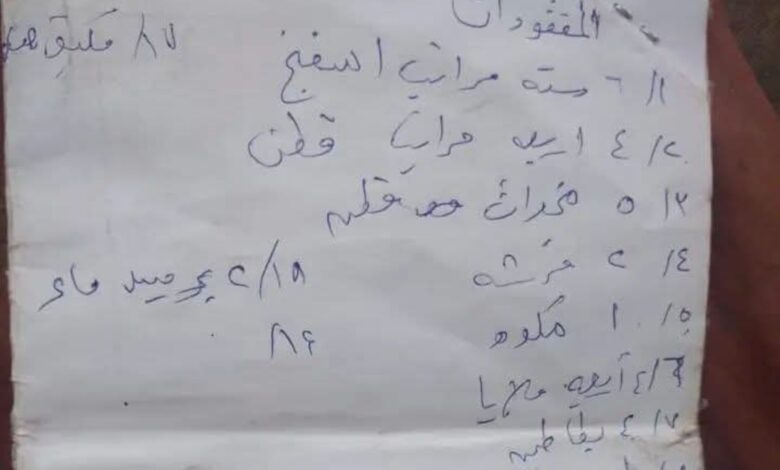 المفقودات
١/ ٦ سته مراتب اسفنج
٢/ ٤ اربعه مراتب قطن
٣/ ٥ مخدات قطن
٤/ ٢ فرشه
٥/ ١ مكوه
٦/ ٤ أربعه ملايا
٧/ ٤ بطاطين
٨/ ٧
١٨/ ٢ برميل ماء